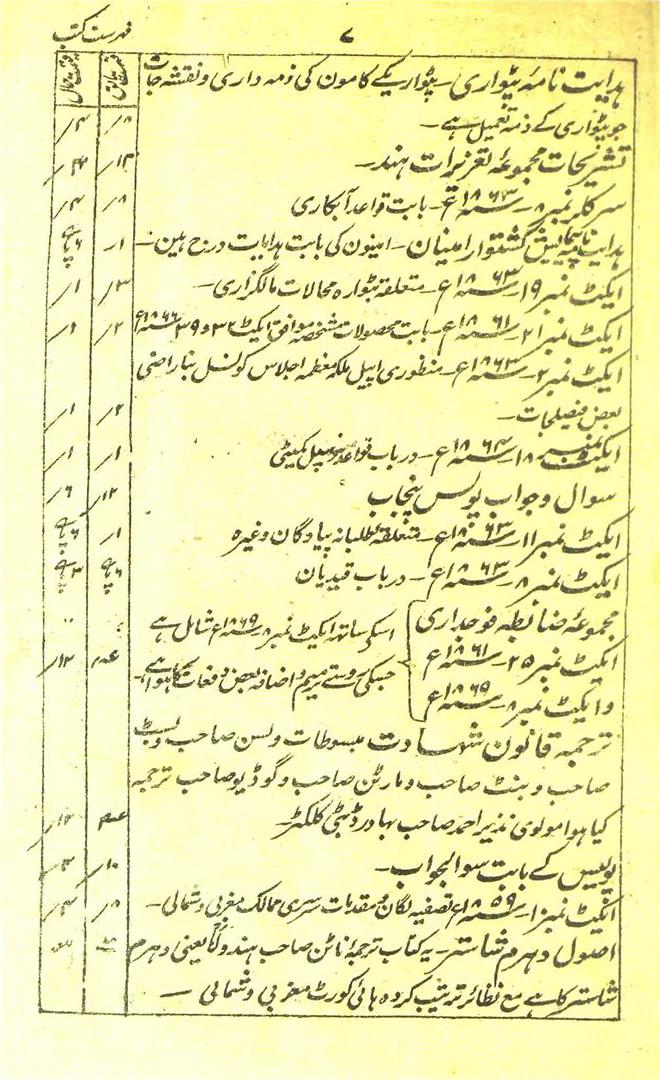 ۷
فہرست کتب
قیمت سابق
قیمت حال
ہدایت نامہ پٹواری۔ پٹواریکے کامون کی ذمہ داری ونقشہ جات
جو پٹواری کے ذمہ تعمیل ہے۔ ۸؍ ۴؍
تشریحات مجموعہ تعزیرات ہند۔ ۱۲؍
سرکلر نمبر ۸۔ سنہ ۱۸۶۳ع۔ بابت قواعد آبکاری ۸؍ ۴؍
ہدایت نامہ پیمایش کشتوار امینان۔ امینون کی بابت ہدایات درج ہین۔ ۱؍ ۶ پائی
ایکٹ نمبر ۱۹۔ سنہ ۱۸۶۳ع۔ متعلقہ بٹوارہ محالات مالگزاری۔ ۳؍ ۱؍
ایکٹ نمبر ۲۱۔ سنہ ۱۸۶۱ع۔ بابت محصولات مشخصہ موافق ایکٹ ۳۲ و ۳۹ سنہ ۱۸۶۰ع ۲؍ ۱؍
ایکٹ نمبر ۲۔ سنہ ۱۸۶۳ع۔ منظوری اپیل ملکہ معظمہ اجلاس کونسل بناراضی
بعض فیصلجات۔ ۲؍ ۱؍
ایکٹ نمبر ۱۸۔ سنہ ۱۸۶۴ع۔ درباب قواعد میونسپل کمیٹی ۱؍ ۱؍
سوال وجواب پولس پنجاب ۱۲؍ ۶؍
ایکٹ نمبر ۱۱۔ سنہ ۱۸۶۳ع۔ متعلقہ طلبانہ پیادگان وغیرہ ۱؍ ۶ پائی
ایکٹ نمبر ۸۔ سنہ ۱۸۶۳ع۔ درباب قیدیان ۶ پائی ۳ پائی
مجموعہ ضابطہ فوجداری
ایکٹ نمبر ۲۵۔ سنہ ۱۸۶۱ع
و ایکٹ نمبر ۸۔ سنہ ۱۸۶۹ع
اسکی ساتھ ایکٹ نمبر ۸ سنہ ۱۸۶۹ع شامل ہے
جسکی روسے ترمیم و اضافہ بعض دفعات کا ہوا ہے۔ ۱۲؍
ترجمہ قانون شہادت مبسوطات ولسن صاحب وبسٹ
صاحب وبنٹ صاحب ومارٹن صاحب وگوڈیو صاحب ترجمہ
کیا ہوا مولوی نذیر احمد صاحب بہادر ڈپٹی کلکٹر۔ ۱۲؍
پولیس کے بابت سوالجواب۔ ۱۰؍ ۳؍
ایکٹ نمبر ۱۰۔ سنہ ۱۸۵۹ع تصفیہ لگان ومقدمات سرسری ممالک مغربی وشمالی۔ ۸؍ ۴؍
اصول دھرم شاستر۔ یہ کتاب ترجمہ ناٹن صاحب ہندولا یعنی دھرم
شاستر کا ہے مع نظائر ترتیب کردہ ہائی کورٹ مغربی وشمالی —